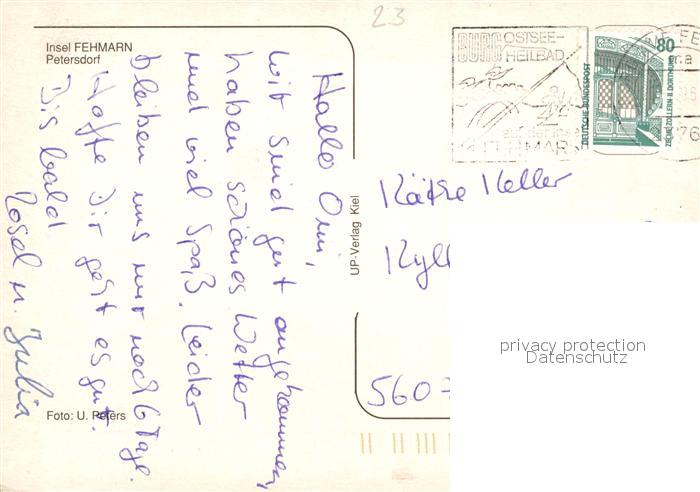 23
Insel FEHMARN
Petersdorf
Hallo Omi,
wir sind gut angekommen,
haben schönes Wetter
und viel Spaß. Leider
bleiben uns nur noch 6 Tage.
Hoffe Dir geht es gut.
Bis bald
Rosel u. Julia
Foto: U. Peters
UP-Verlag Kiel
BURG OSTSEE-
HEILBAD
auf der Insel
FEHMARN
80
DEUTSCHE BUNDESPOST
ZECHE ZOLLERN II DORTMUND
Käthe Keller
Kyll
5607
privacy protection
Datenschutz